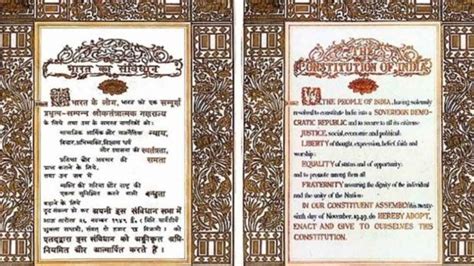 भारत का संविधान
भारत के लोग, भारत को एक सम्पूर्ण
प्रभुत्व-सम्पन्न लोकतन्त्रात्मक गणराज्य
के लिये, तथा उसके समस्त नागरिकों को:
सामाजिक, आर्थिक और राजनैतिक न्याय,
विचार, अभिव्यक्ति, विश्वास, धर्म
और उपासना की स्वतंत्रता,
प्रतिष्ठा और अवसर की समता
प्राप्त कराने के लिये,
तथा उन सब में
व्यक्ति की गरिमा और राष्ट्र की
बन्धुता
बढ़ाने के लिये
दृढ़ संकल्प हो कर अपनी इस संविधान सभा में
आज तारीख २६ नवम्बर १९४९ ई० (मिति मार्गशीर्ष
शुक्ला सप्तमी, संवत् दो हजार छः विक्रमी) को
एतद्द्वारा इस संविधान को अङ्गीकृत, अधि-
नियमित और आत्मार्पित करते हैं।
THE
CONSTITUTION OF INDIA
WE, THE PEOPLE OF INDIA, having solemnly
resolved to constitute India into a SOVEREIGN DEMO-
CRATIC REPUBLIC and to secure to all its citizens:
JUSTICE, social, economic and political;
LIBERTY of thought, expression, belief, faith and
worship;
EQUALITY of status and of opportunity;
and to promote among them all
FRATERNITY assuring the dignity of the individual
and the unity of the Nation;
IN OUR CONSTITUENT ASSEMBLY this twenty-
sixth day of November, 1949, do HEREBY ADOPT,
ENACT AND GIVE TO OURSELVES THIS
CONSTITUTION.